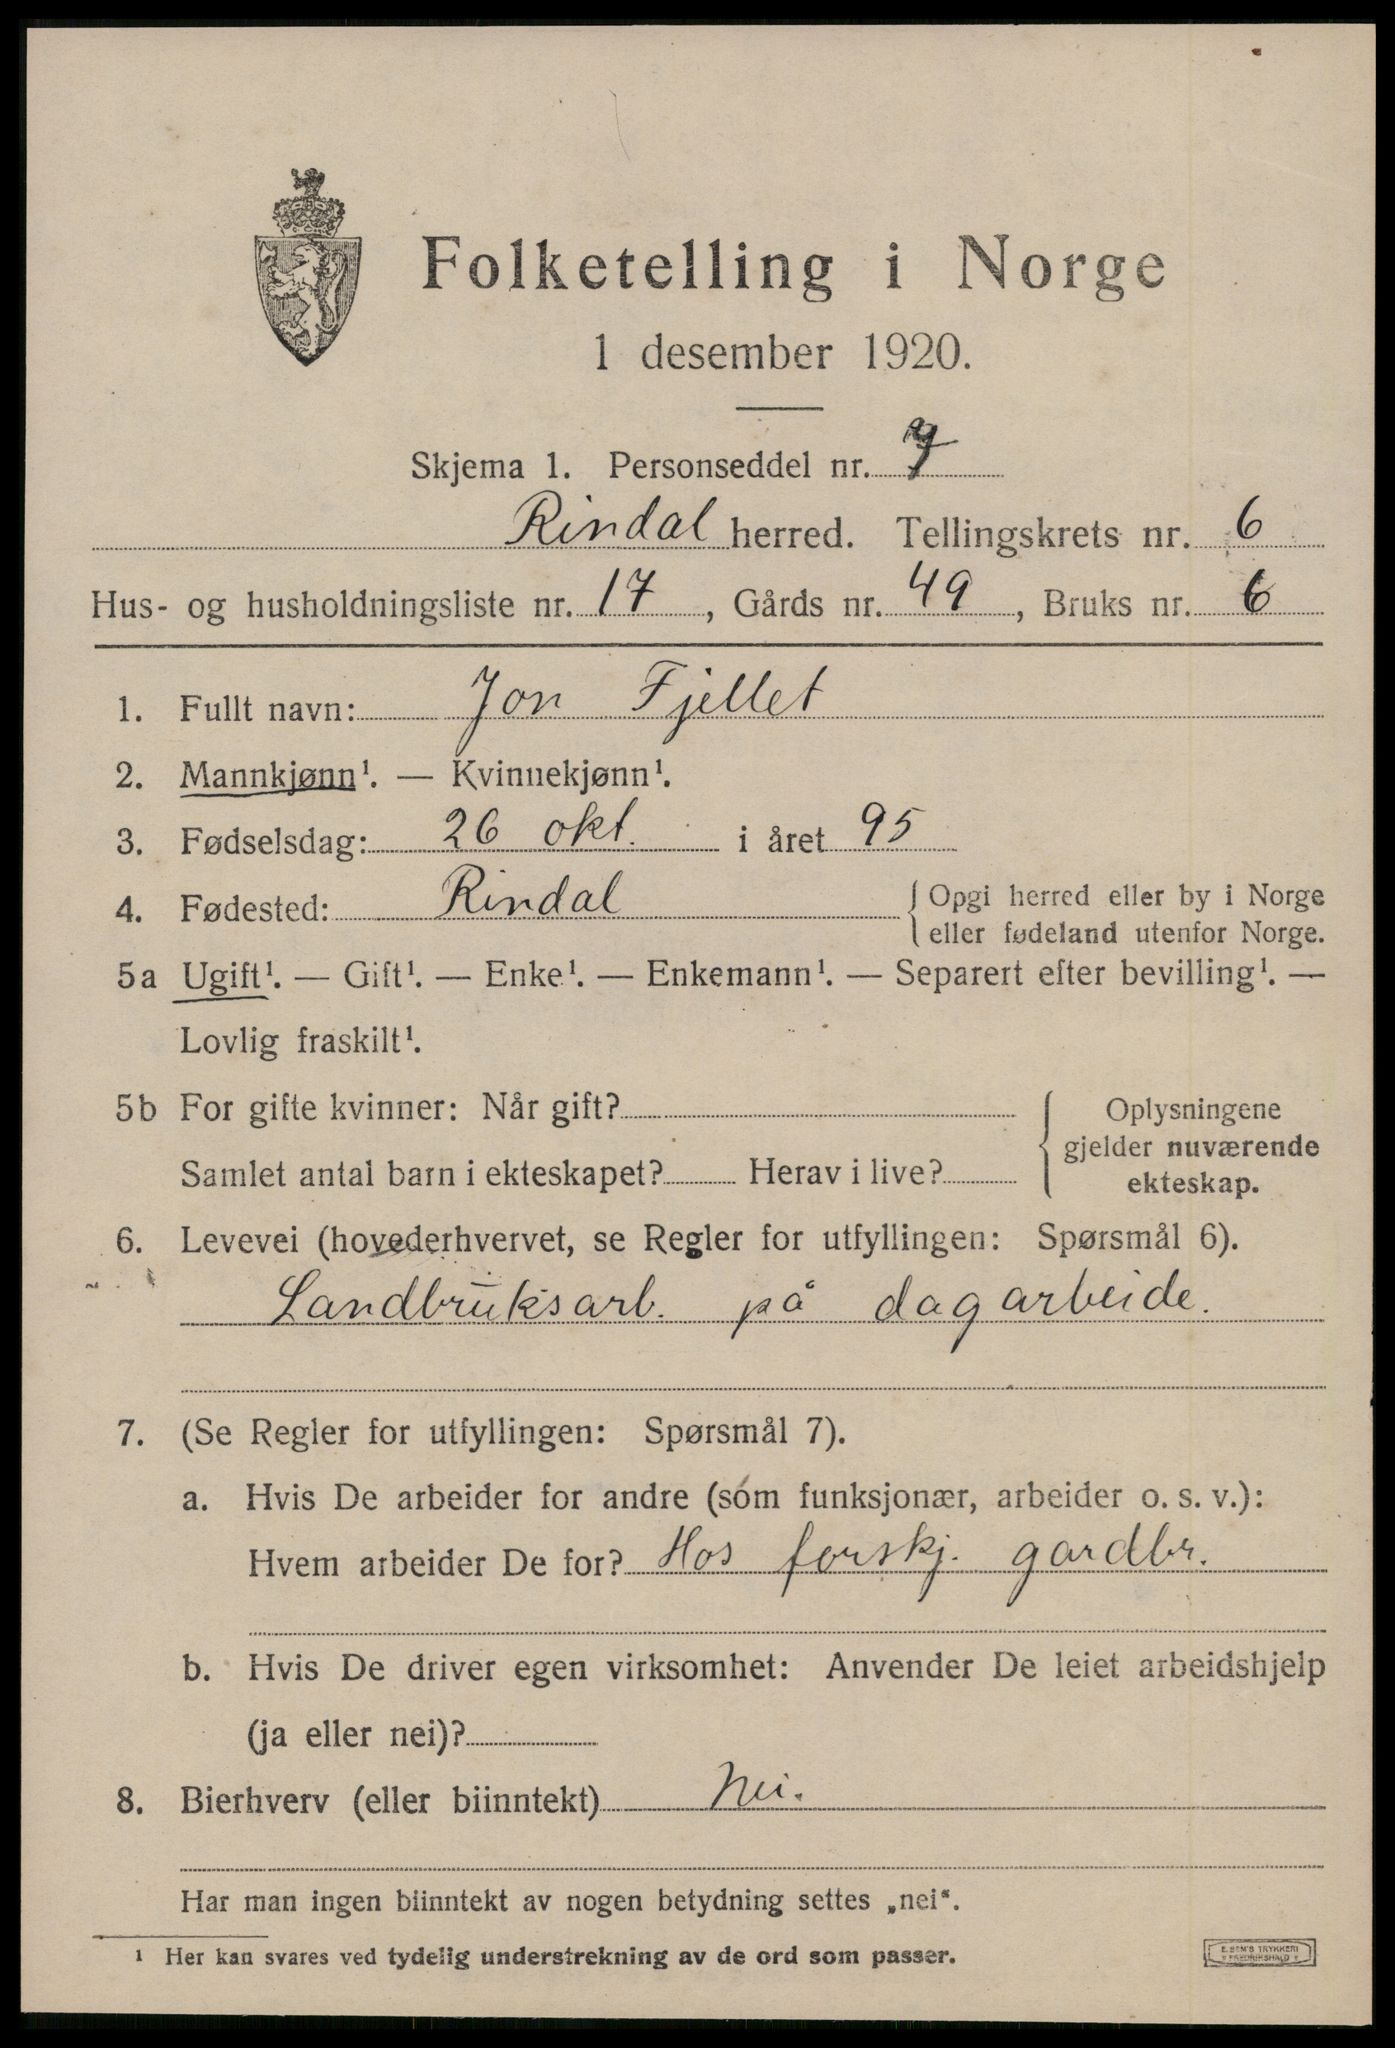 Folketelling i Norge
1 desember 1920.
Skjema 1. Personseddel nr. 7
Rindal herred. Tellingskrets nr. 6
Hus- og husholdningsliste nr. 17, Gårds nr. 49, Bruks nr. 6
1. Fullt navn: Jon Fjellet
2. Mannkjønn¹. — Kvinnekjønn¹.
3. Fødselsdag: 26 okt. i året 95
4. Fødested: Rindal {Opgi herred eller by i Norge
eller fødeland utenfor Norge.
5a Ugift¹. — Gift¹. — Enke¹. — Enkemann¹. — Separert efter bevilling¹. —
Lovlig fraskilt¹.
5b For gifte kvinner: Når gift?
Samlet antal barn i ekteskapet? Herav i live?
Oplysningene
gjelder nuværende
ekteskap.
6. Levevei (hovederhvervet, se Regler for utfyllingen: Spørsmål 6).
Landbruksarb. på dagarbeide.
7. (Se Regler for utfyllingen: Spørsmål 7).
a. Hvis De arbeider for andre (som funksjonær, arbeider o. s. v.):
Hvem arbeider De for? Hos forskj. gardbr.
b. Hvis De driver egen virksomhet: Anvender De leiet arbeidshjelp
(ja eller nei)?
8. Bierhverv (eller biinntekt) Nei.
Har man ingen biinntekt av nogen betydning settes „nei“.
¹ Her kan svares ved tydelig understrekning av de ord som passer.
E. SEM'S TRYKKERI
FREDRIKSHALD